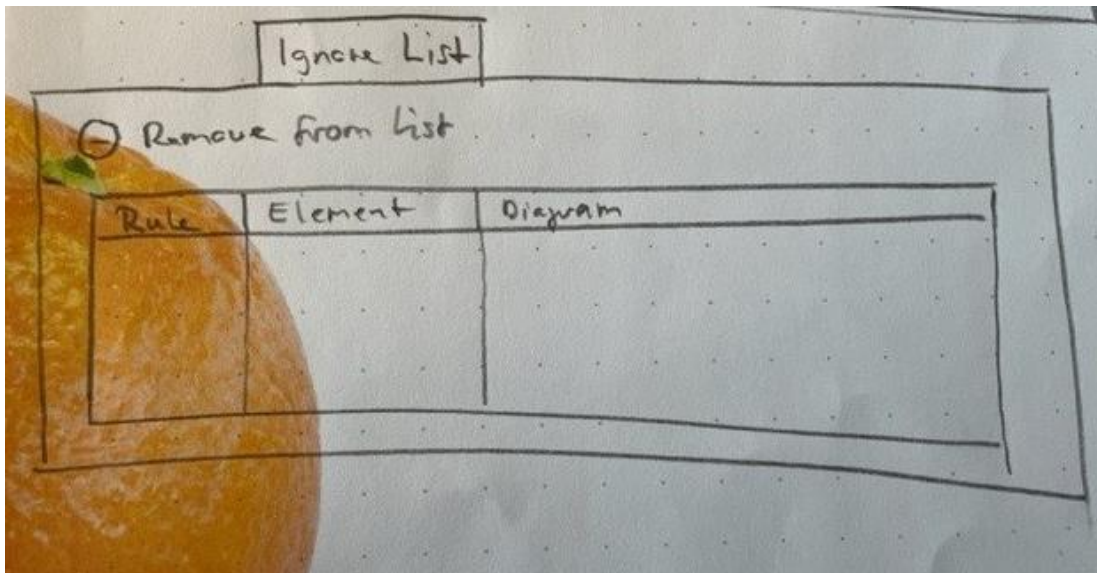 Ignore List
Remove from list
Rule Element Diagram